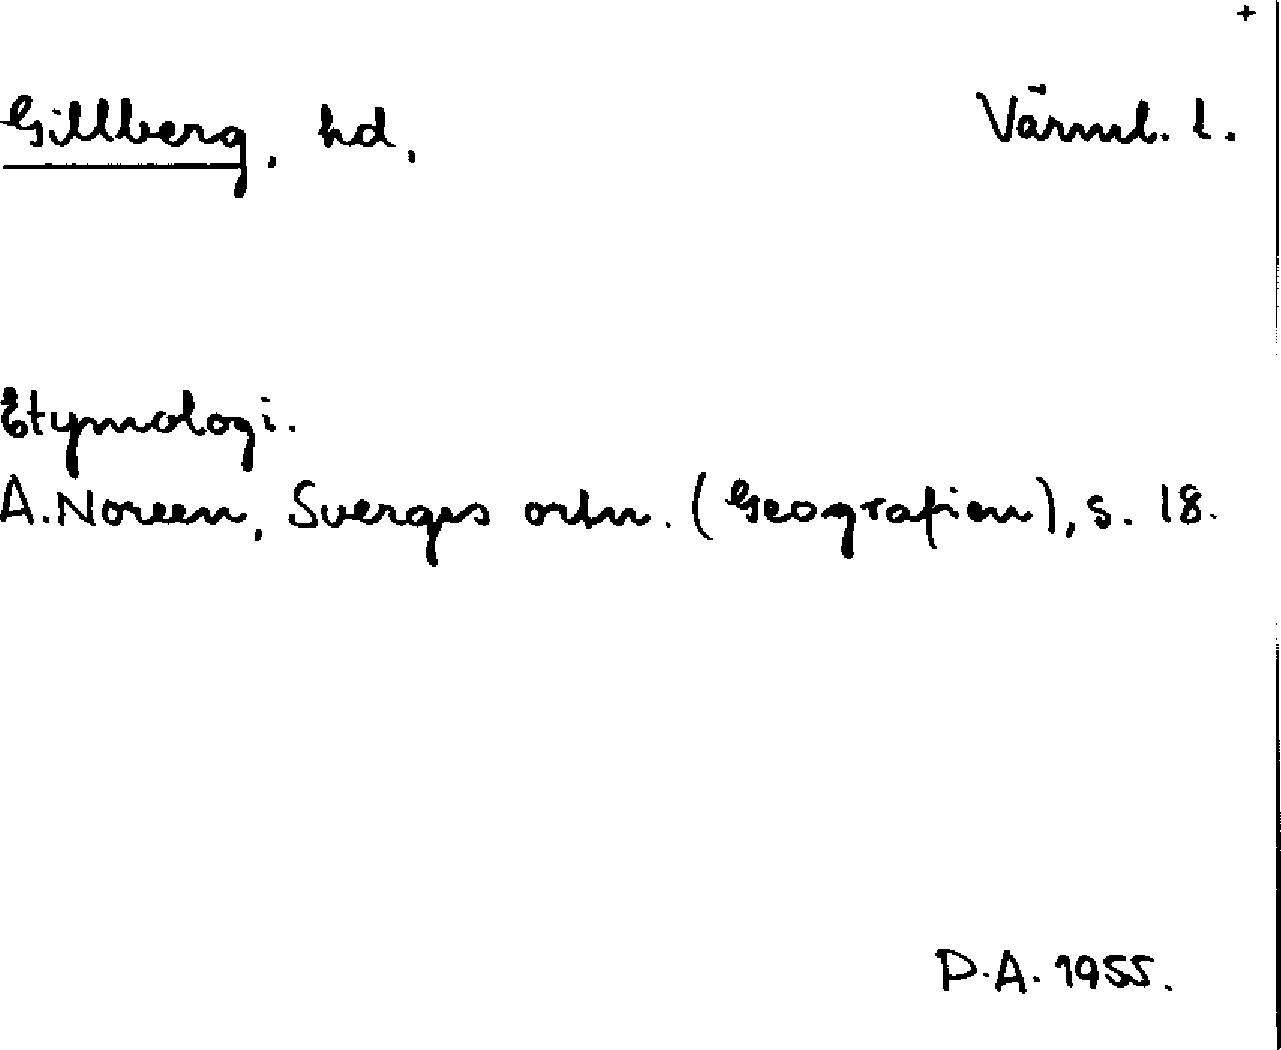 +
Gillberg, hd, Värml. l.
Etymologi.
A. Noreen, Sverges ortn. (Geografien), s. 18.
P.A. 1955.